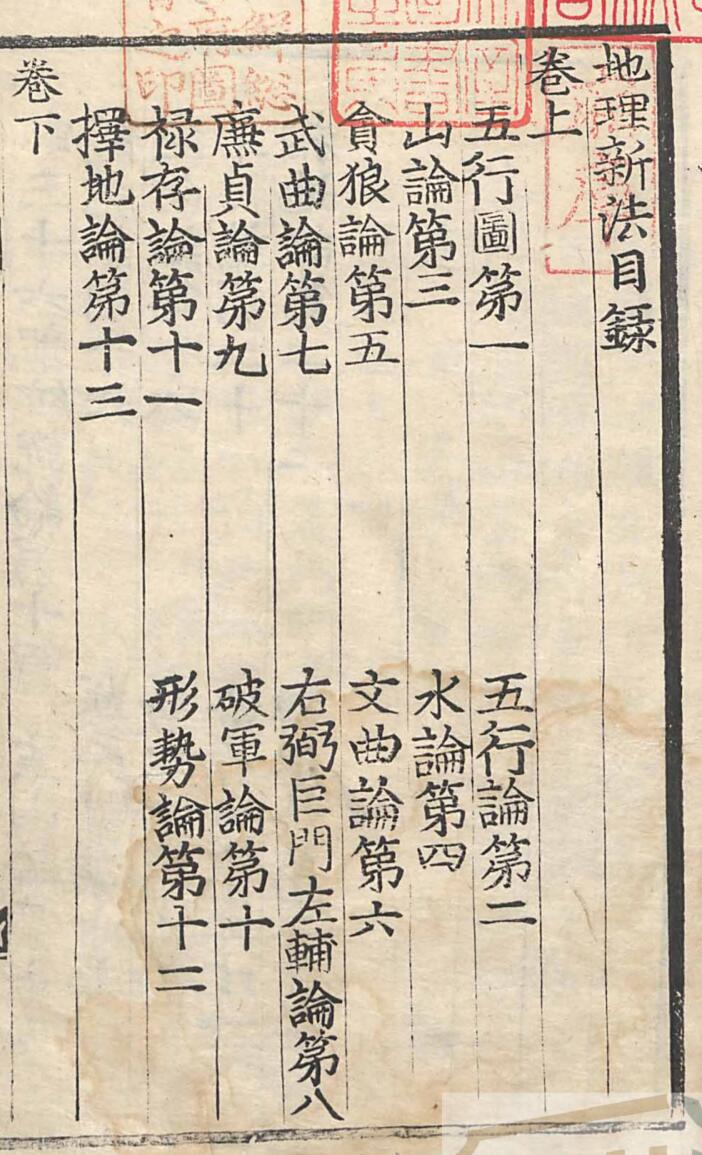 地理新法目録
卷上
五行圖第一
五行論第二
山論第三
水論第四
貪狼論第五
文曲論第六
武曲論第七
右弼巨門左輔論第八
廉貞論第九
破軍論第十
禄存論第十一
形勢論第十二
擇地論第十三
卷下